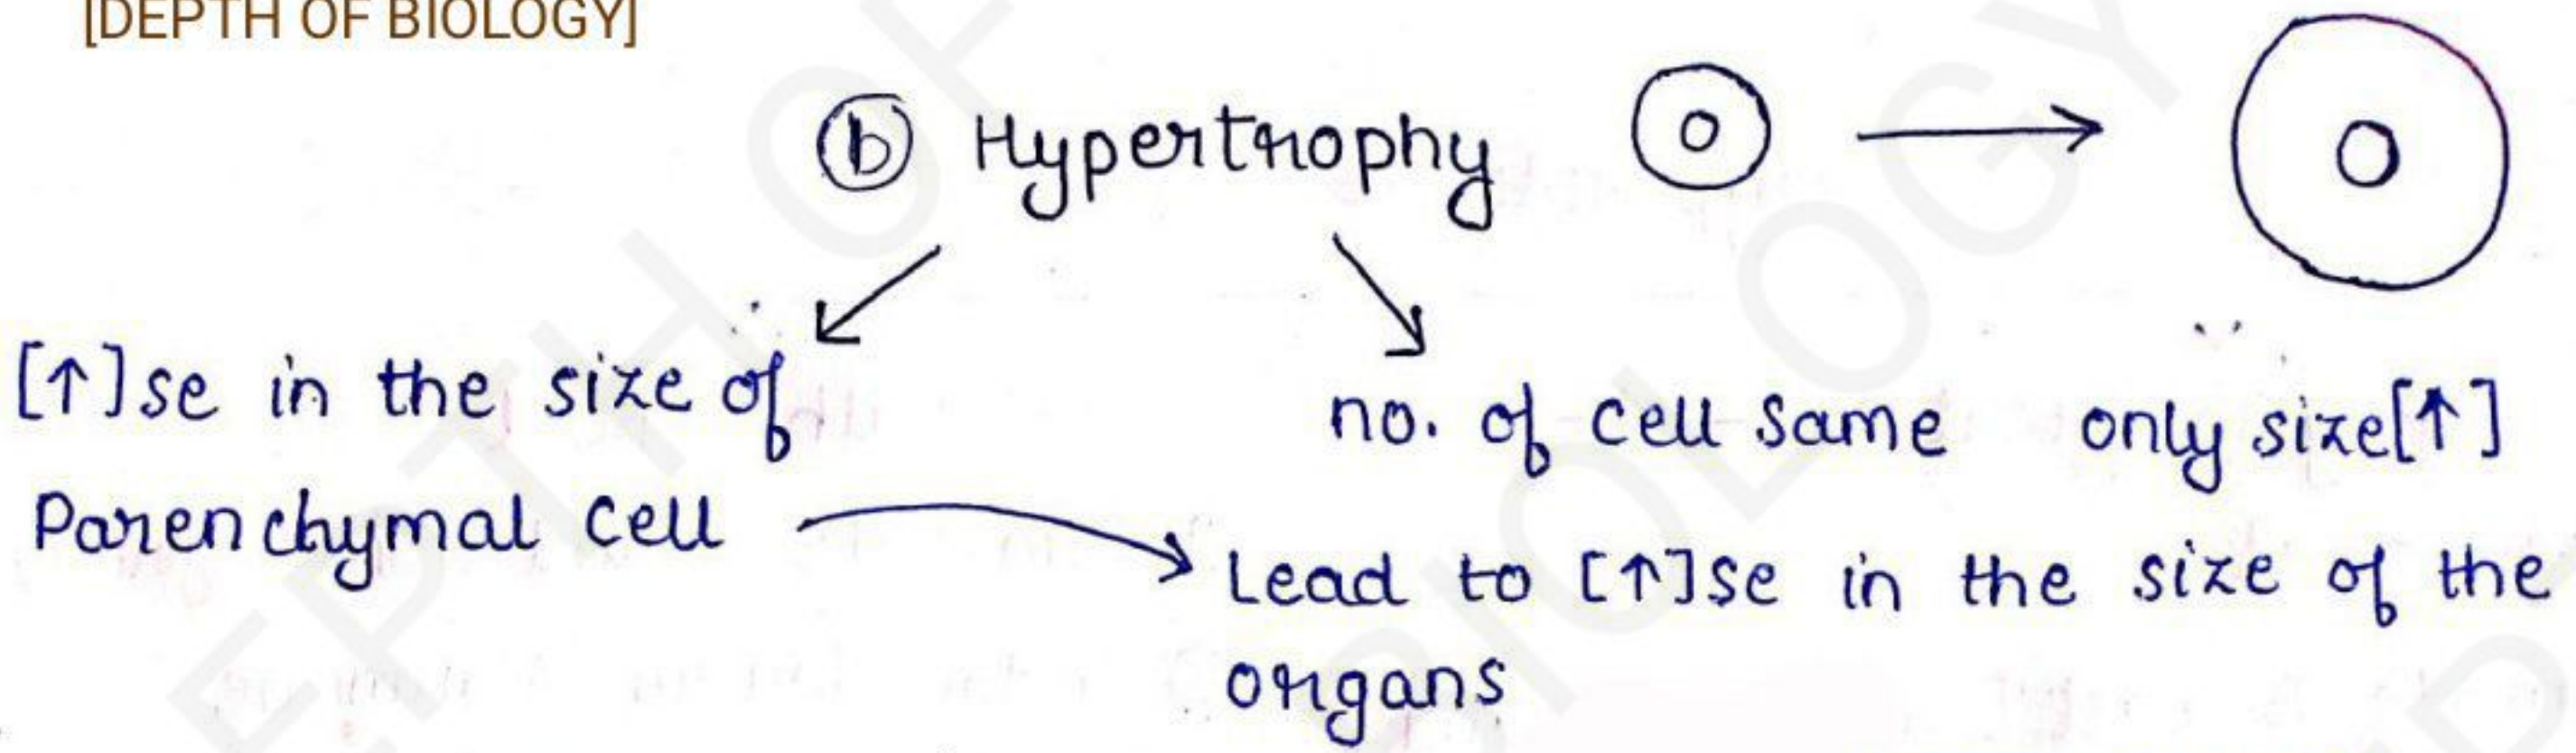 [DEPTH OF BIOLOGY]
ⓑ Hypertrophy
[↑]se in the size of
Parenchymal cell
no. of cell same only size[↑]
Lead to [↑]se in the size of the
organs